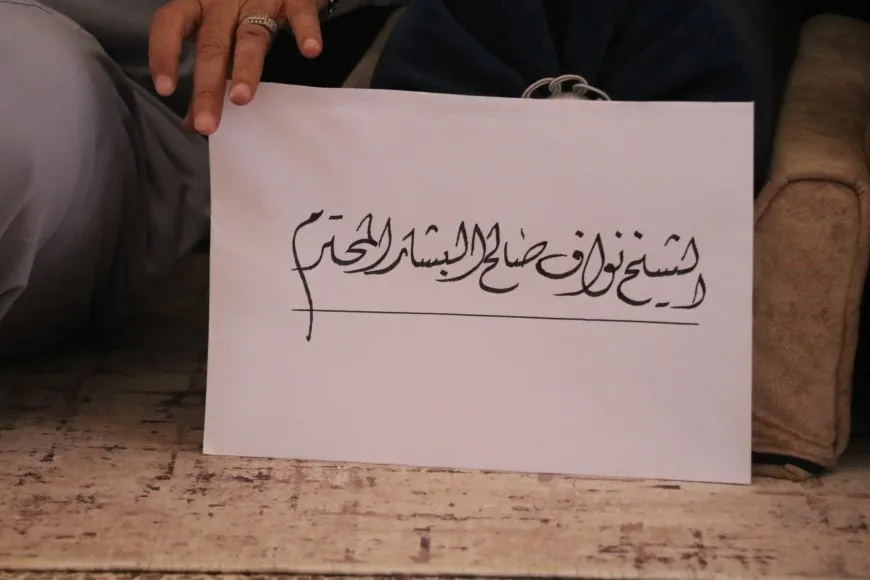 الشيخ نواف صالح البشار المحترم